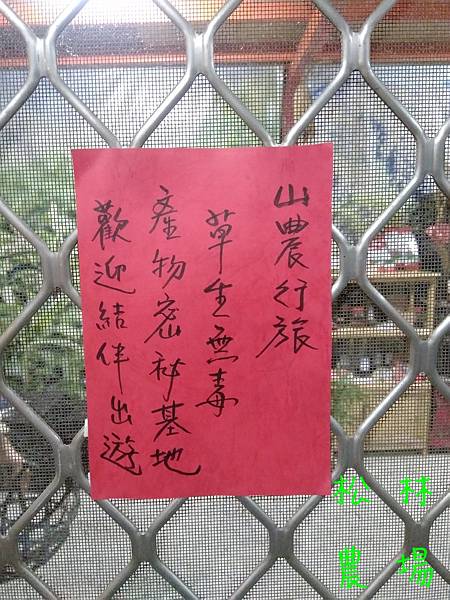 山農行旅
草生無毒
產物密祕基地
歡迎結伴出遊
松林
農場